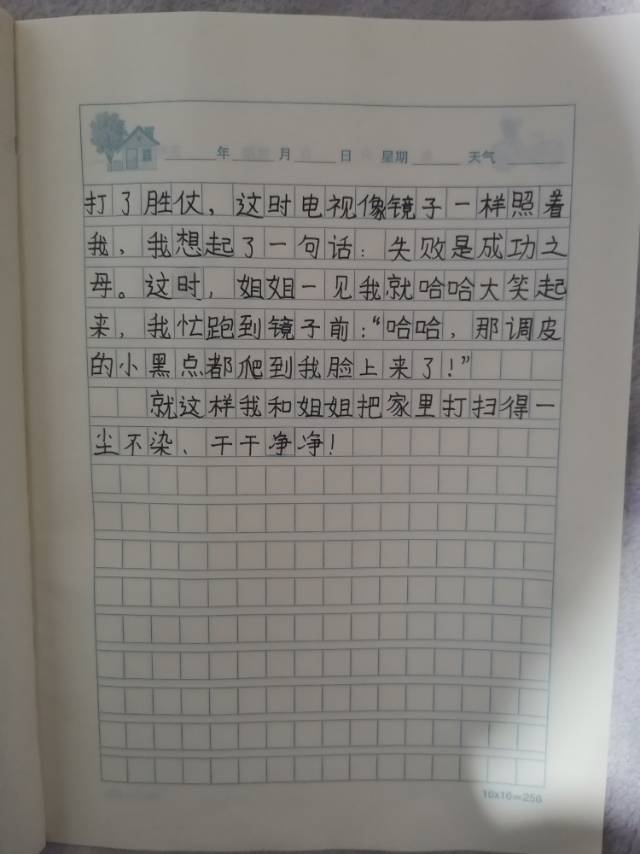 年 月 日 星期 天气
打了胜仗，这时电视像镜子一样照着
我，我想起了一句话：失败是成功之
母。这时，姐姐一见我就哈哈大笑起
来，我忙跑到镜子前：“哈哈，那调皮
的小黑点都爬到我脸上来了！”
就这样我和姐姐把家里打扫得一
尘不染、干干净净！
16x16=256